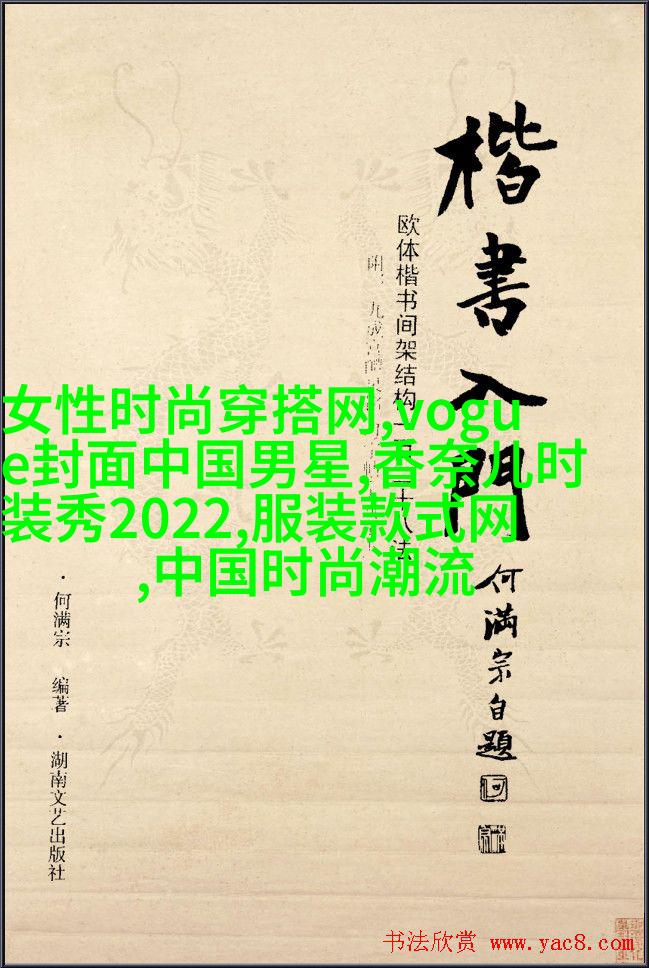 楷書入門
何滿宗自題
欧体楷书间架结构一
十八法
女性时尚穿搭网,vogu
e封面中国男星,香奈儿时
装秀2022,服装款式网
,中国时尚潮流
·何满宗 编著·湖南文艺出版社
书法欣赏 www.yac8.com